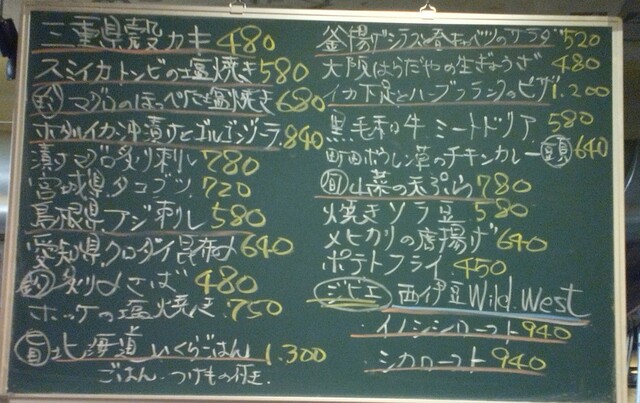 三重県殻カキ 480
スミイカトンビの塩焼き 580
マグロのほっぺた塩焼き 680
ホタルイカ沖漬けとゴルゴンゾーラ 840
漬けマグロ炙り刺し 780
宮城県タコブツ 720
島根県アジ刺し 580
愛知県クロダイ昆布〆 640
炙り〆さば 480
ホッケの塩焼き 750
北海道いくらごはん 1.300
ごはん・つけもの付き.
釜揚げシラスと春キャベツのサラダ 520
大阪はらだやの生ぎょうざ 480
イカ下足とハーブフランクのピザ 1.200
黒毛和牛ミートドリア 580
町田ほうれん草のチキンカレー 640
旬 山菜の天ぷら 780
焼きソラ豆 580
メヒカリの唐揚げ 640
ポテトフライ 450
ジビエ 西伊豆Wild.West
・イノシシロースト 940
・シカロースト 940